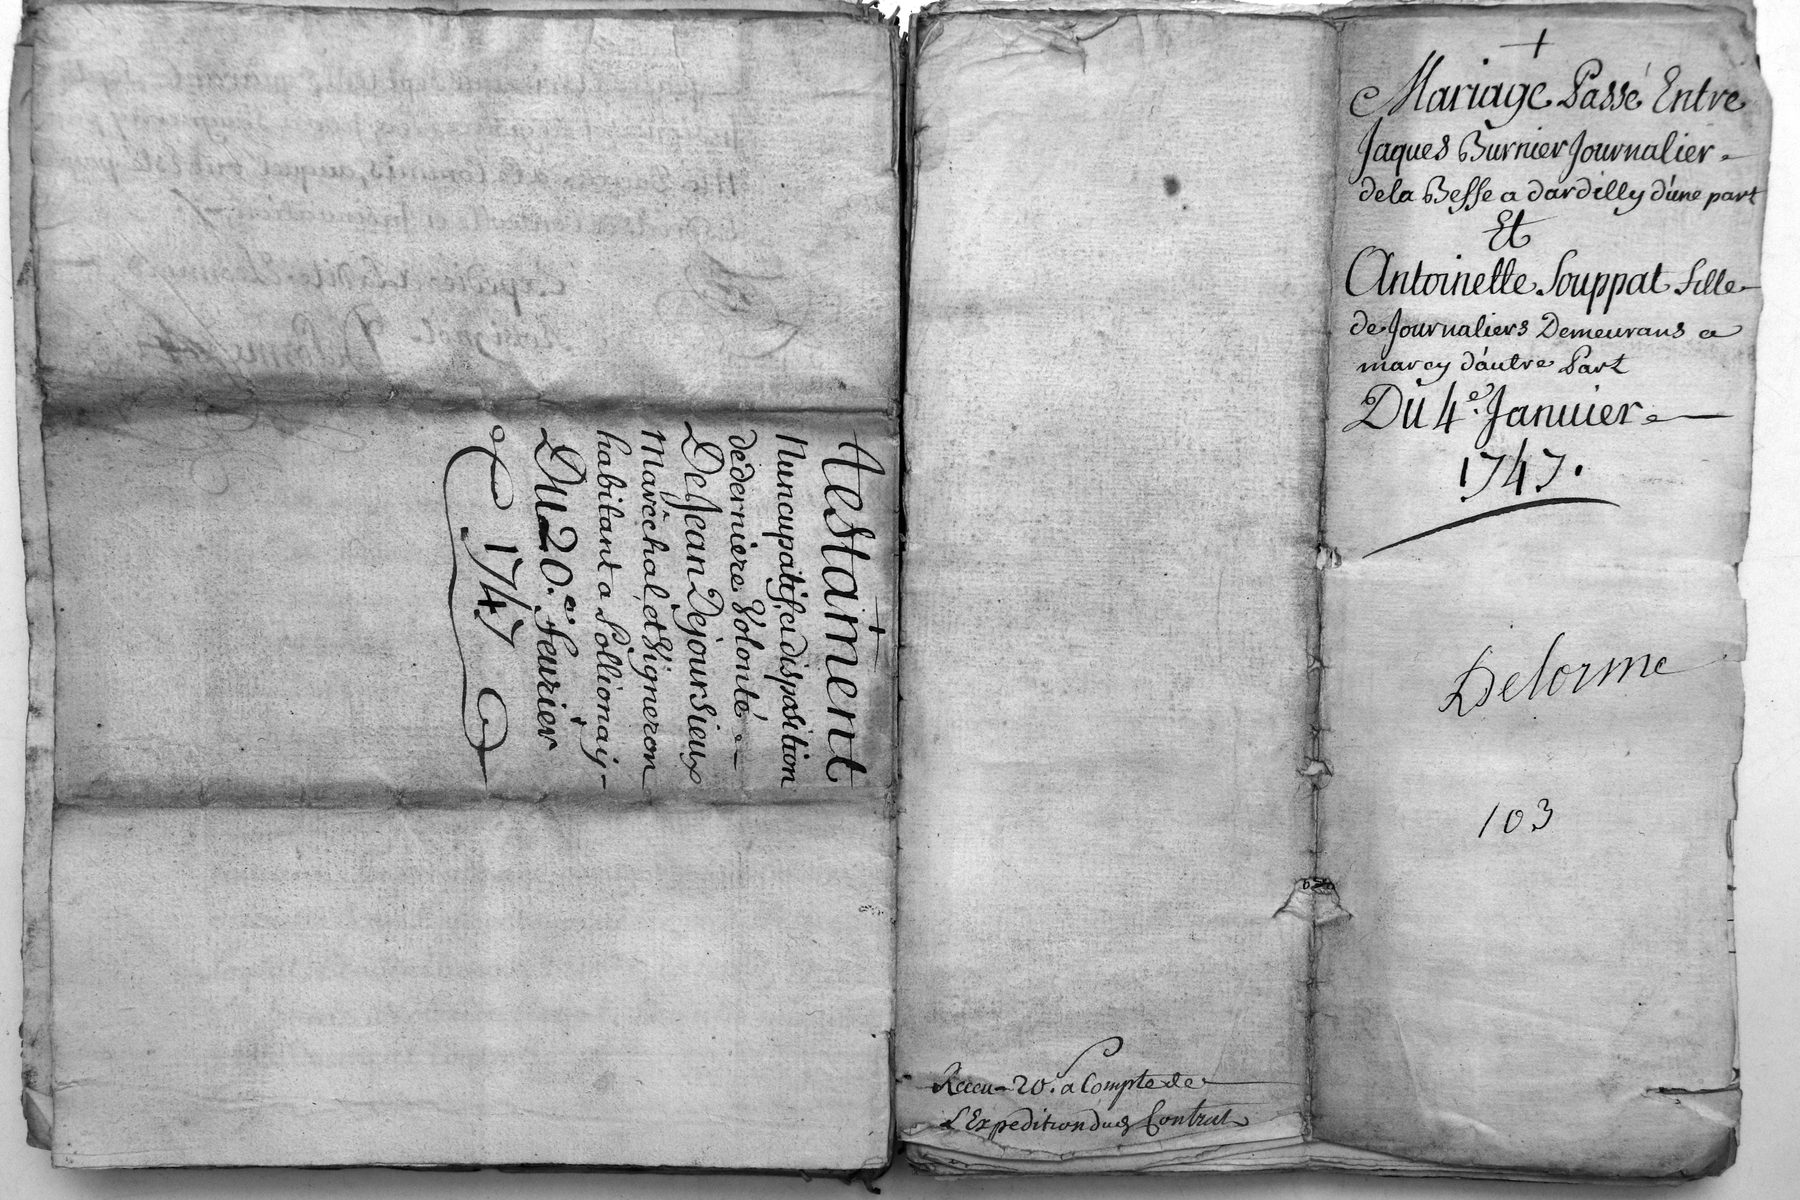 Testament
Nuncupatif, et disposition
de derniere Volonté
De Jean Dejoursieux
Maréchal, et Vigneron
habitant a Pollionay
Du 20.e feurier
1747
Mariage Passé Entre
Jaques Burnier Journalier
de la Besse a dardilly d'une part
Et
Antoinette Souppat fille
de Journaliers Demeurans a
marcy d'autre Part
Du 4.e Januier
1747.
Delorme
103
Receu 20. a Compte de
L'Expedition du Contrat